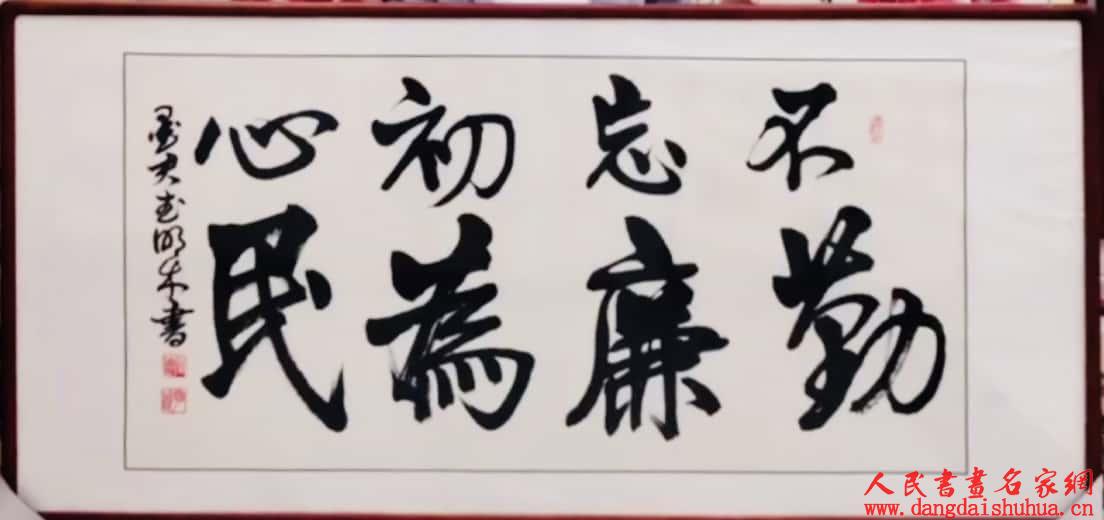 不忘初心
勤廉為民
书
人民書畫名家網
www.dangdaishuhua.cn